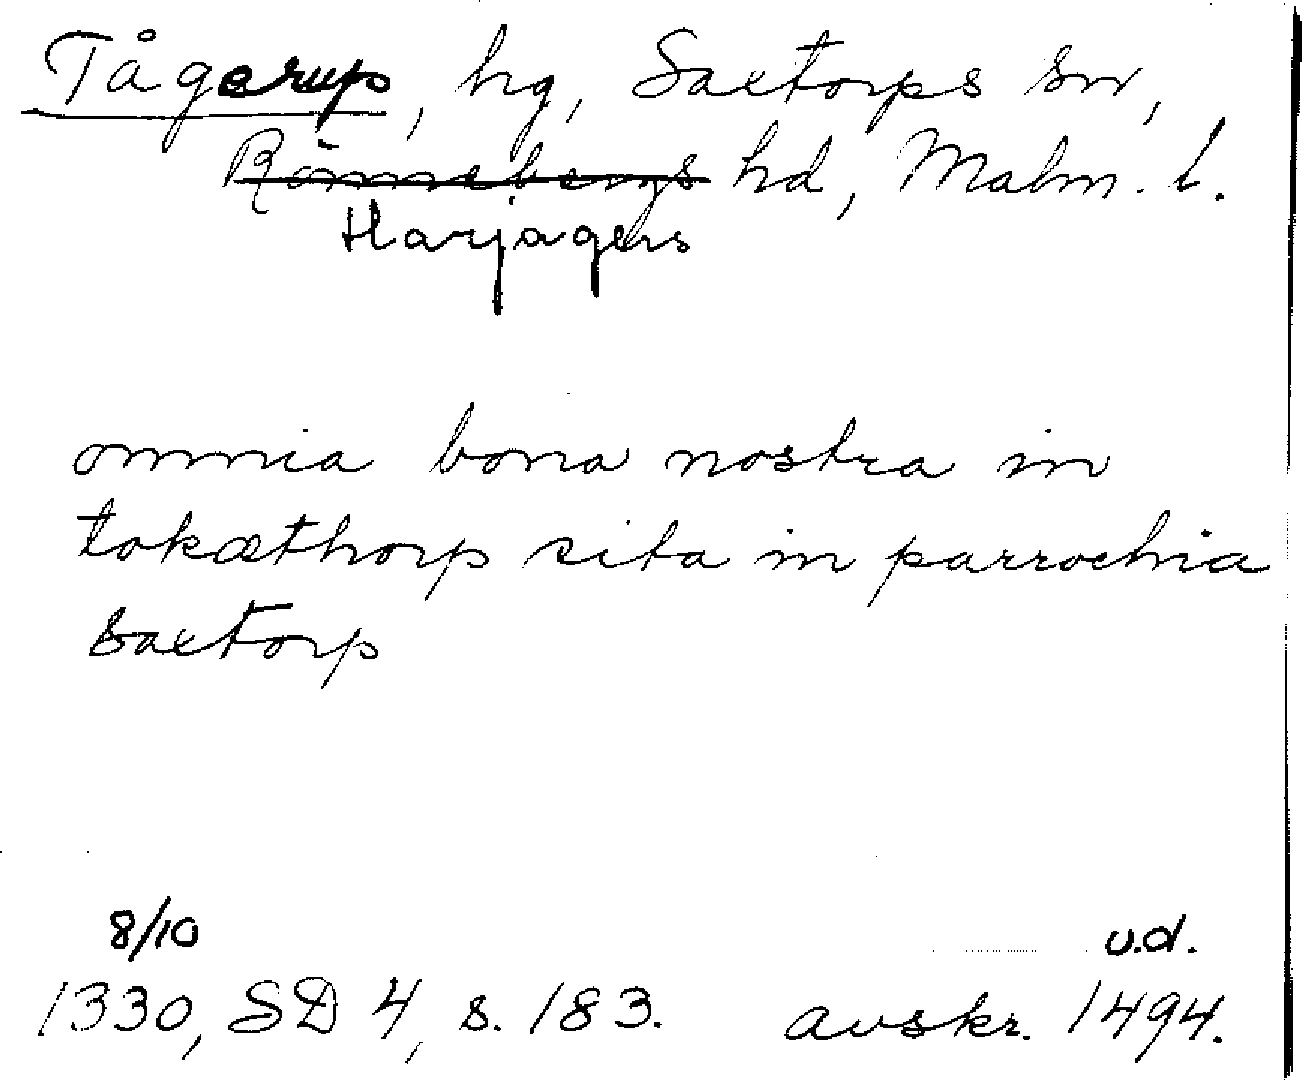 Tågerup, hg, Saxtorps sn,
Rönnebergs hd, Malm. l.
Harjagers
omnia bona nostra in
tokæthorp sita in parrochia
saxtorp
8/10
u.d.
1330, SD 4, s. 183. avskr. 1494.